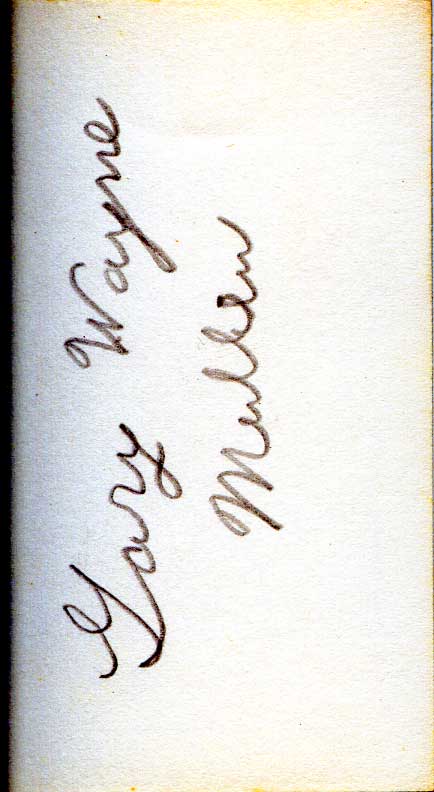 Gary Wayne
Mullen